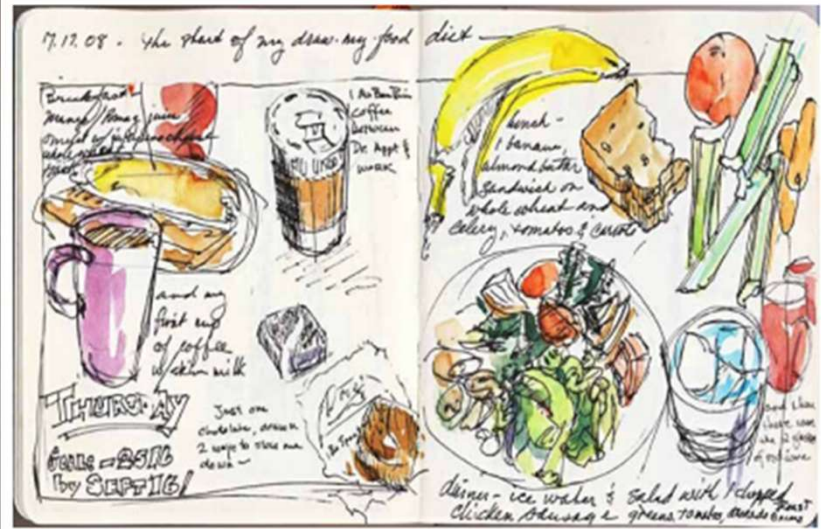 7.17.08 - The start of my draw-my-food diet -
Breakfast
Mango / Orange juice
omelet w/
whole wheat
1 Au Bon Pain
coffee
between
Dr. Appt &
WORK
and my
first cup
of coffee
w/ skim milk
THURSDAY
GOAL = 25 lb
by SEPT 16!
Just one
chocolate, drawn
2 ways to slow me
down -
lunch -
1 banana,
almond butter
Sandwich on
whole wheat and
Celery, tomatos & carrots
and then
there were
the 2 glasses
of red wine
dinner - ice water & Salad with 1 chopped
Chicken Sausage greens, tomatoes,